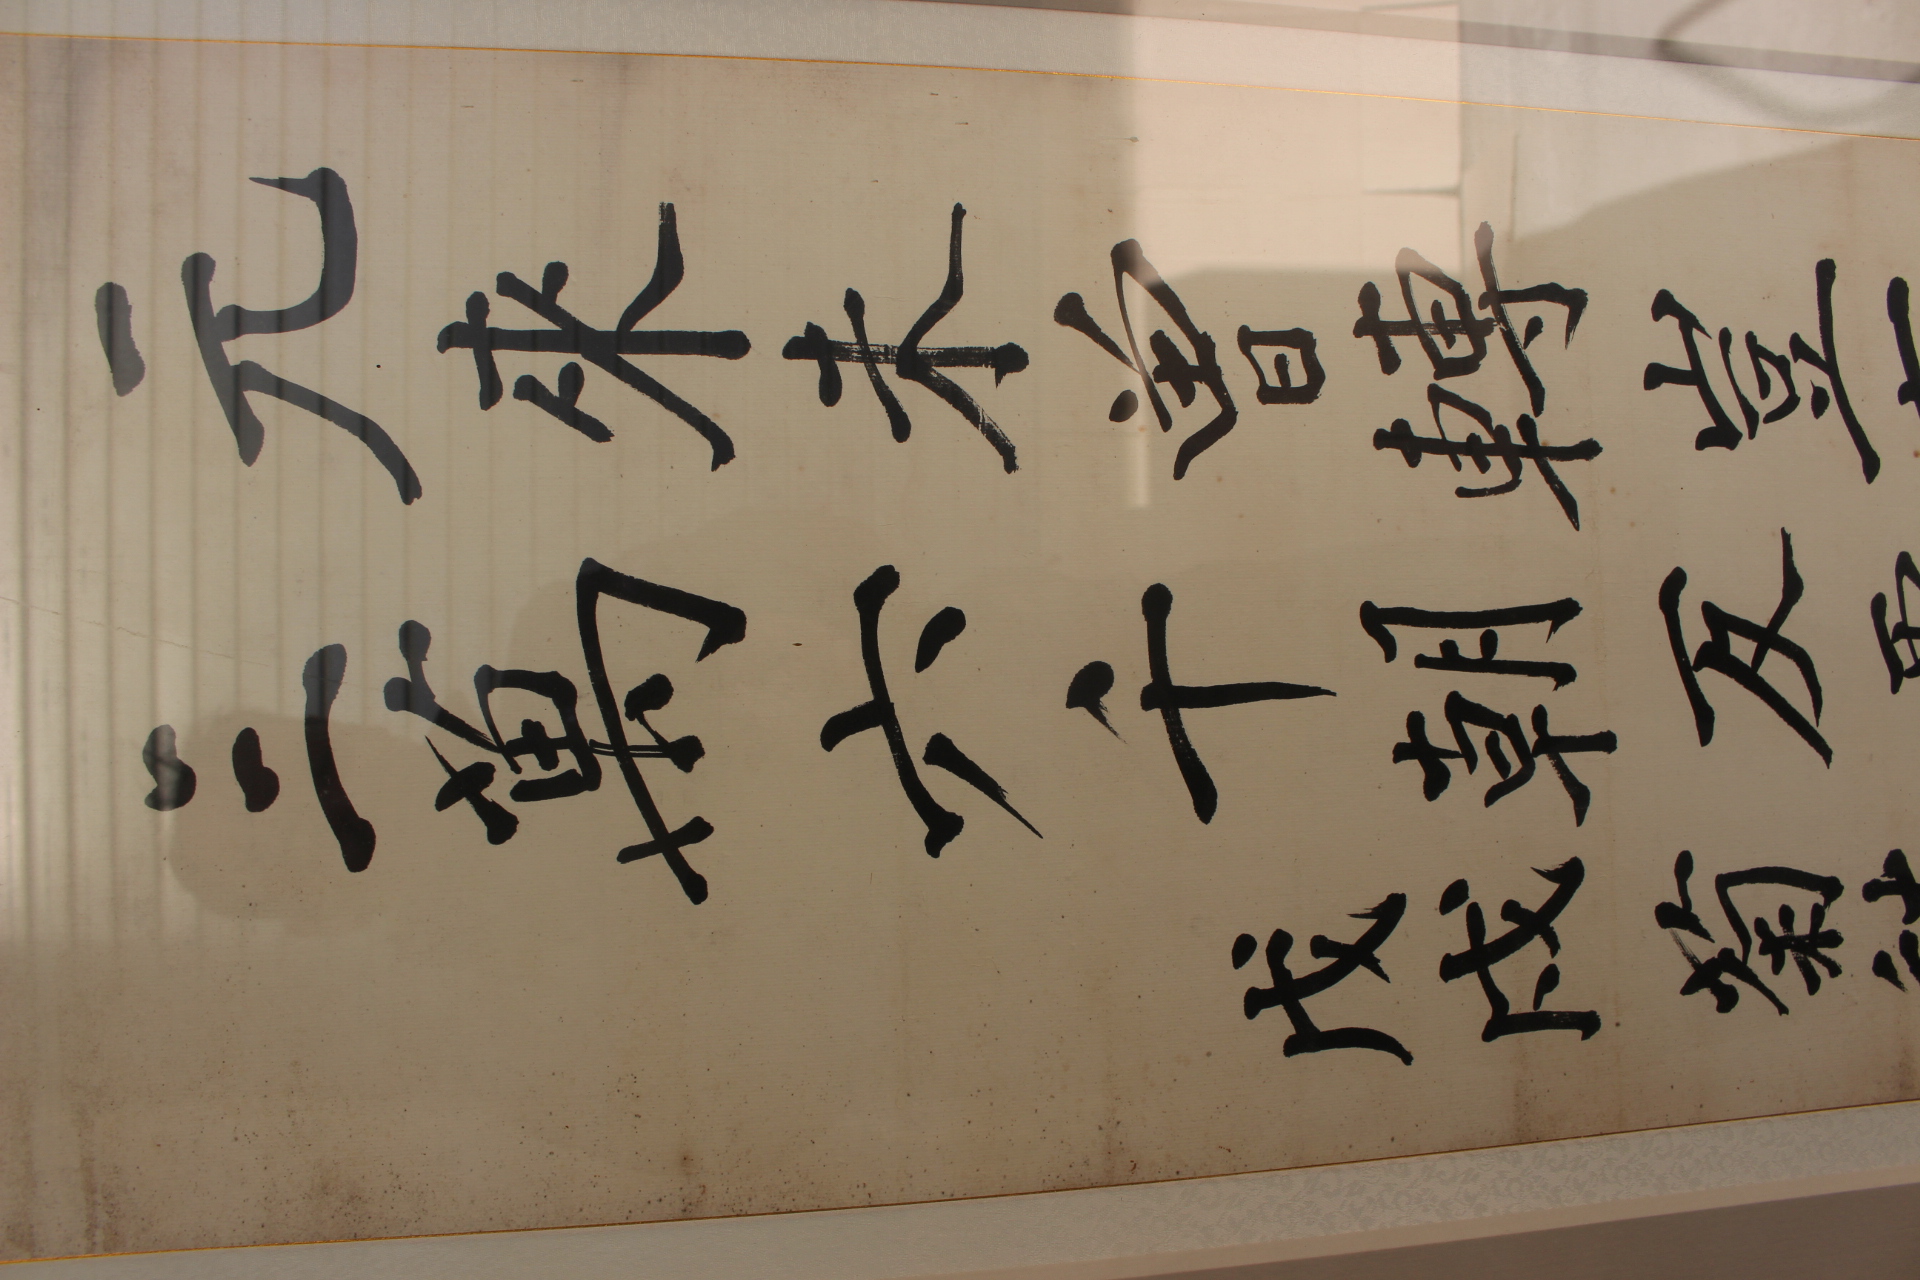 元來未會轉豈
三萬六千朝反
戊戌菊